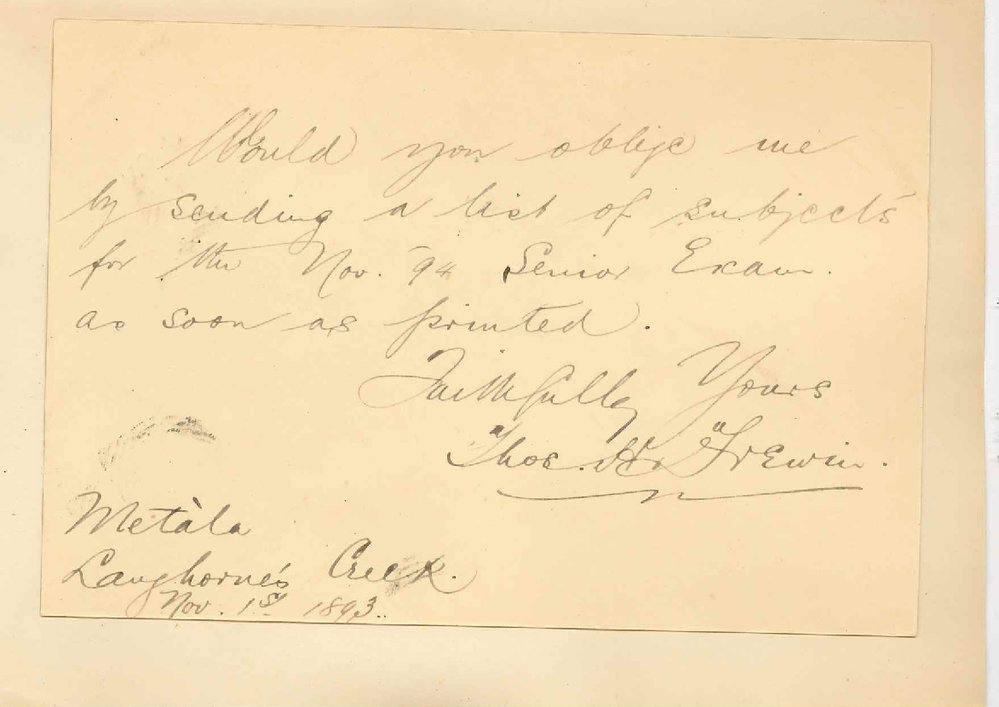 Would you oblige me
by sending a list of subjects
for the Nov. 94 Senior Exam.
as soon as printed.
Faithfully Yours
Thos. H. Frewin.
Metàla
Langhorne's Creek.
Nov. 1st 1893.